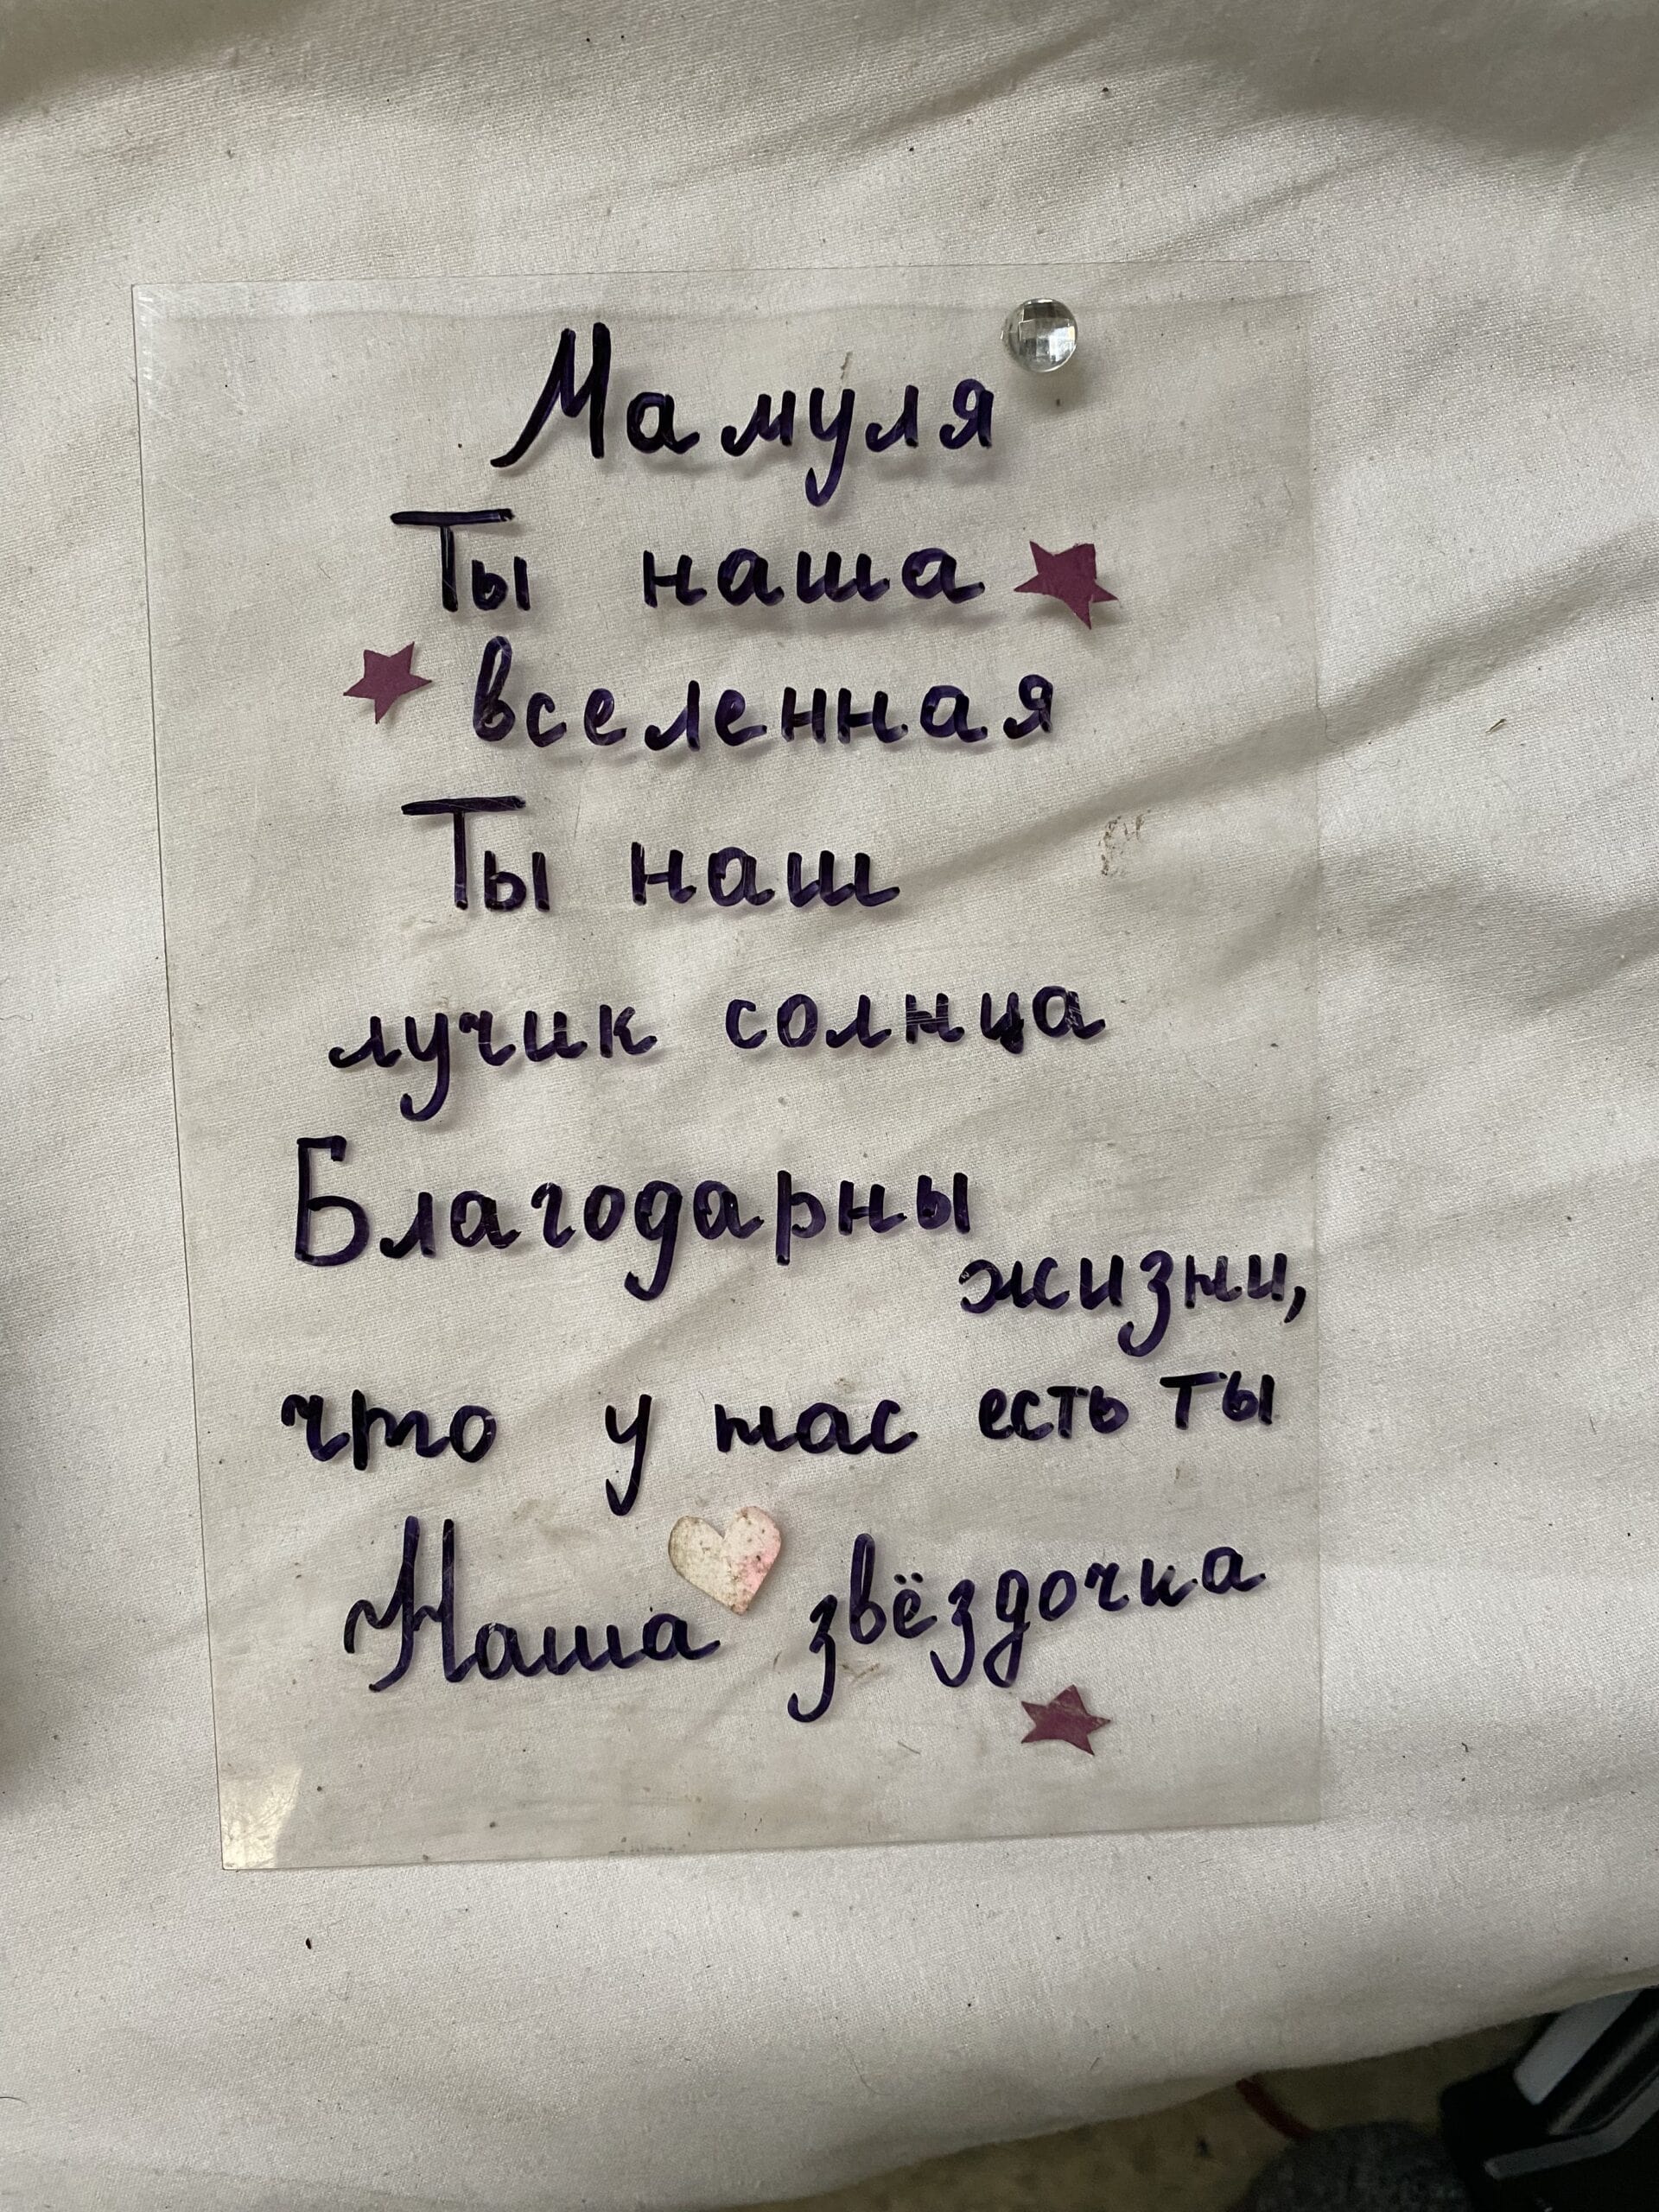 Мамуля
Ты наша
вселенная
Ты наш
лучик солнца
Благодарны
жизни,
что у нас есть ты
Наша звёздочка